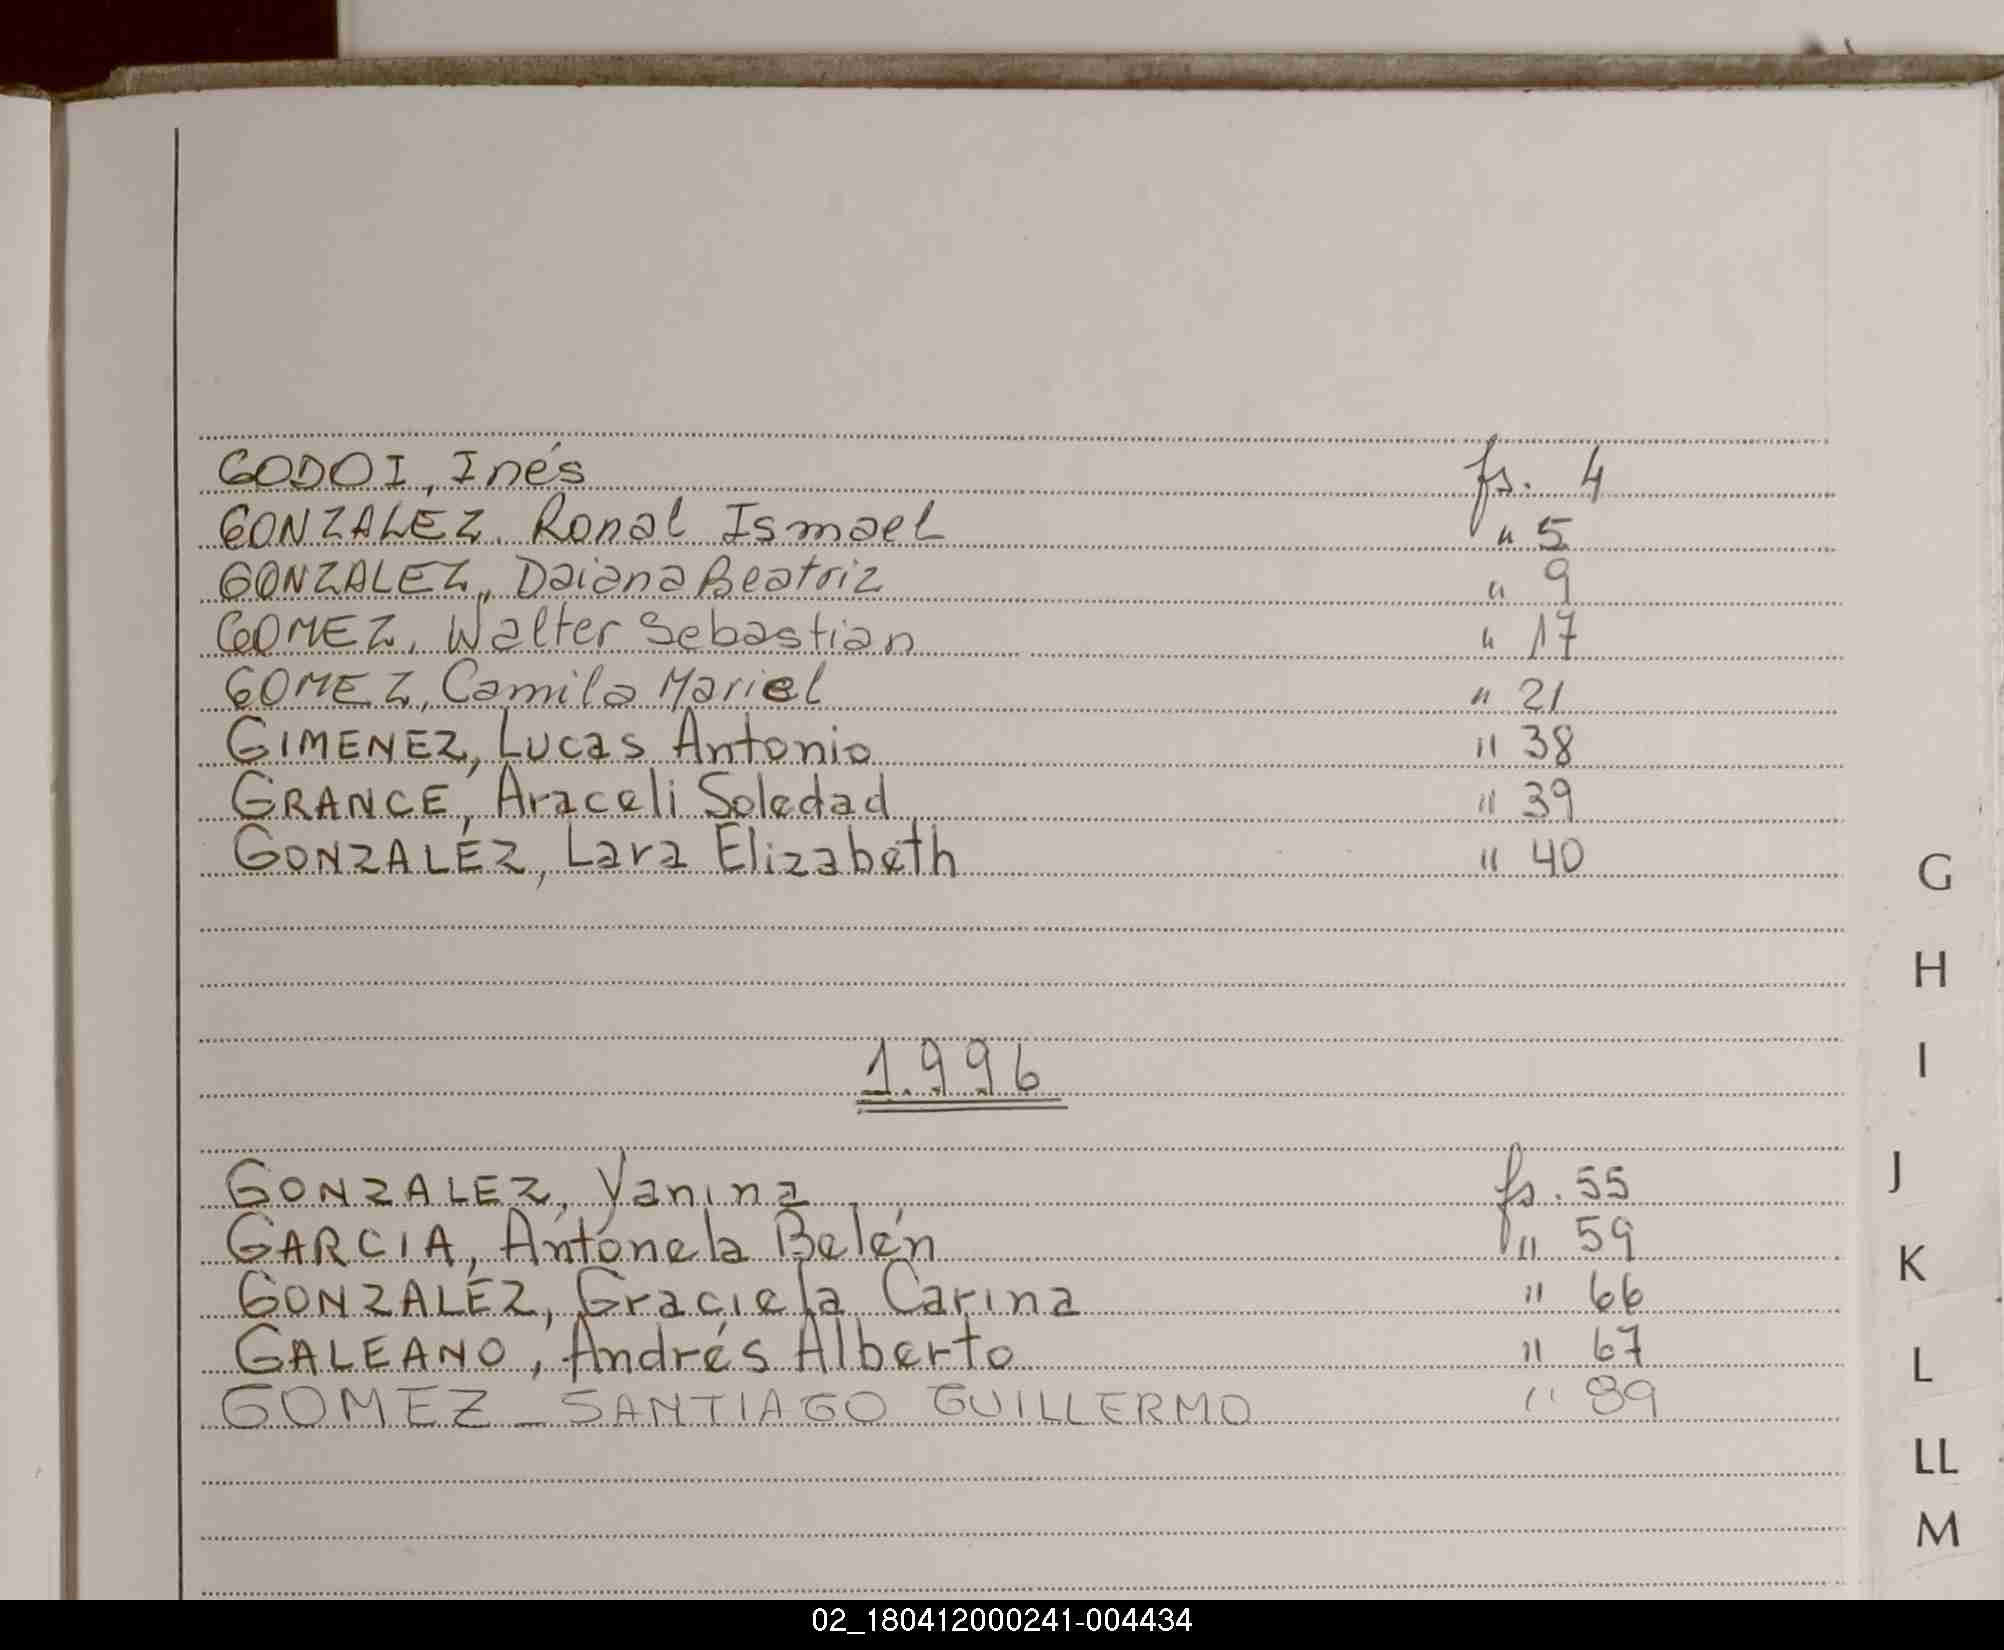 GODOI, Inés fs. 4
GONZALEZ, Ronal Ismael " 5
GONZALEZ, Daiana Beatriz " 9
GOMEZ, Walter Sebastian " 17
GOMEZ, Camila Mariel " 21
GIMENEZ, Lucas Antonio " 38
GRANCE, Araceli Soledad " 39
GONZALEZ, Lara Elizabeth " 40
G
H
I
1.996
J
GONZALEZ, Yanina fs. 55
GARCIA, Antonela Belén " 59
K
GONZALEZ, Graciela Carina " 66
GALEANO, Andrés Alberto " 67
L
GOMEZ - SANTIAGO GUILLERMO " 89
LL
M
02_180412000241-004434